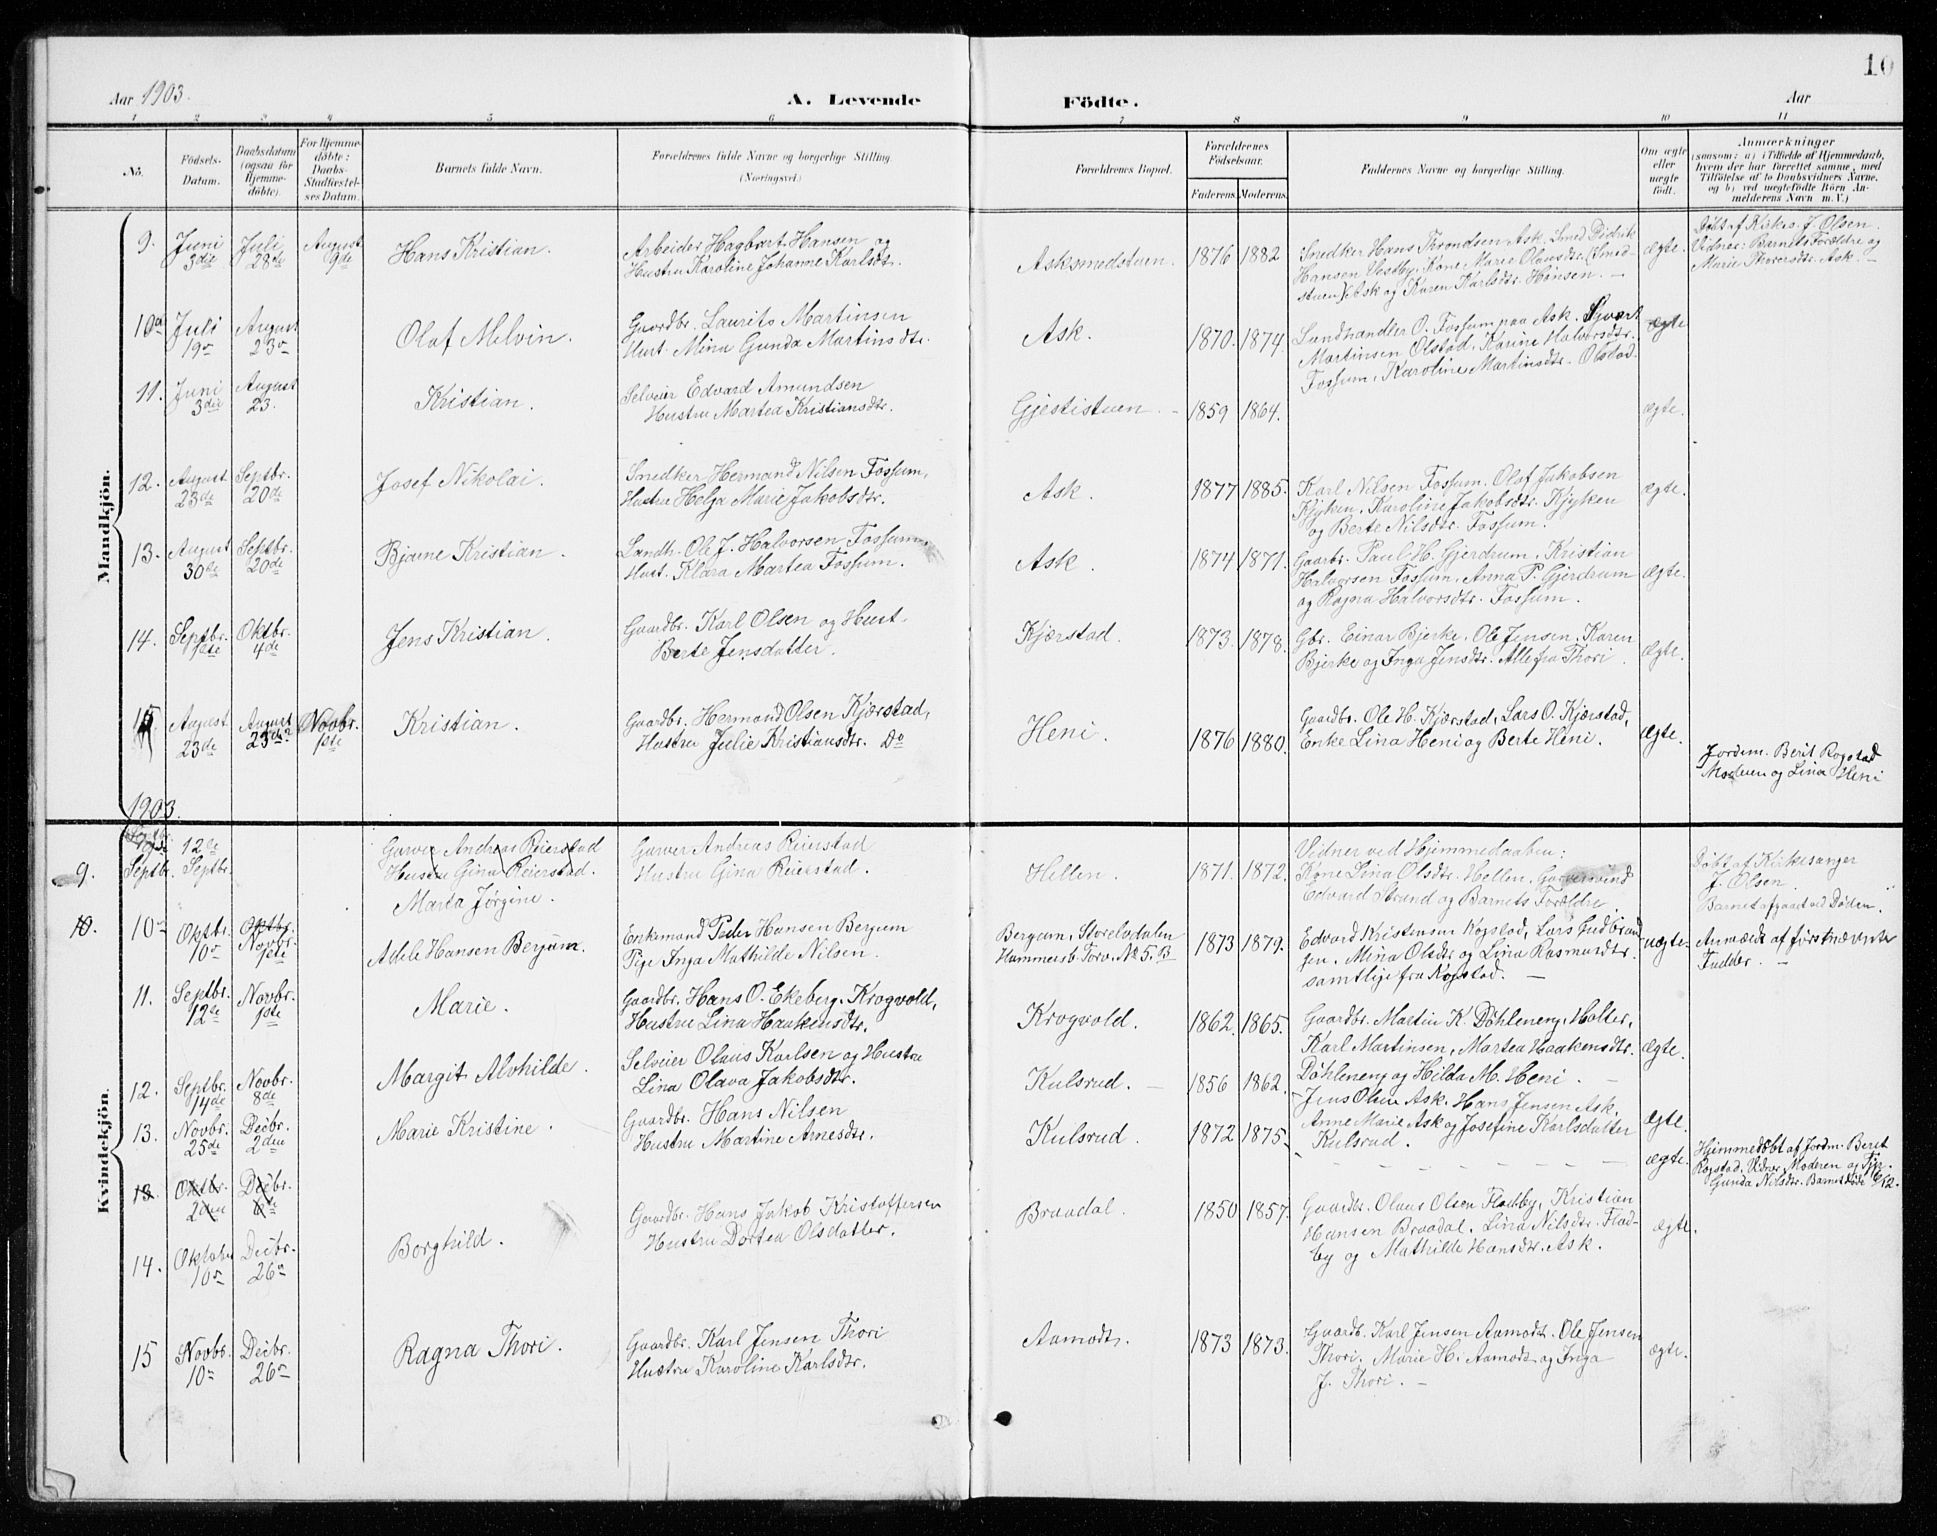 10
Aar 1903.
A. Levende Födte.
Aar
1 2 3 4 5 6 7 8 9 10 11
No.
Födsels-Datum.
Daabsdatum (ogsaa for Hjemmedøbte).
For Hjemmedøbte: Daabs-Stadfæstelses Datum.
Barnets fulde Navn.
Forældrenes fulde Navne og borgerlige Stilling.
(Næringsvei.)
Forældrenes Bopæl.
Forældrenes Födselsaar.
Faderens.
Moderens.
Faddernes Navne og borgerlige Stilling.
Om ægte eller uægte født.
Anmærkninger
(saasom: a) i Tilfælde af Hjemmedaab, hvem der har forrettet samme, med Tilföielse af to Daabsvidners Navne, og b) ved uægtefödte Börn Anmelderens Navn m. V.)
Mandkjön.
9. Juni 3die Juli 28de August 9de Hans Kristian.
Arbeider Hagbart Hansen og
Hustru Karoline Johanne Karlsdt.
Asksmedstuen. 1876 1882
Snedker Hans Throndsen Ask, Smed Didrik
Hansen Vestby, Kone Marie Olausdtr. (Smed-
stuen) Ask og Karen Karlsdtr. Hønsen. —
ægte.
Døbt af Kirkes. J. Olsen.
Vidner: Barnets Forældre og
Marie Thorersdtr. Ask. —
10 Juli 19 August 23 Olaf Melvin.
Gaardbr. Laurits Martinsen
Hust. Mina Gunda Martinsdtr.
Ask. 1870. 1874.
Landhandler O. Fossum paa Ask.
Martinsen Olstad, Karine Halvorsdtr.
Fossum, Karoline Martinsdtr. Olstad.
ægte
11. Juni 3die August 23. Kristian.
Selveier Edvard Amundsen
Hustru Martea Kristiansdtr.
Gjestistuen. – 1859 1864. ægte.
12. August 23de Septbr. 20de Josef Nikolai.
Snedker Hermand Nilsen Fossum,
Hustru Helga Marie Jakobsdtr.
Ask. 1877 1885.
Karl Nilsen Fossum. Olaf Jakobsen
Kjyken, Karoline Jakobsdtr. Kjyken
og Berte Nilsdtr. Fossum.
ægte.
13. August 30te Septbr. 20de Bjarne Kristian.
Landh. Ole J. Halvorsen Fossum,
Hust. Klara Martea Fossum.
Ask. 1874 1871.
Gaarbr. Paul H. Gjerdrum, Kristian
Halvorsen Fossum, Anna P. Gjerdrum
og Ragna Halvorsdtr. Fossum.
ægte.
14. Septbr. 1ste Oktbr. 4de Jens Kristian.
Gaardbr. Karl Olsen og Hust.
Berte Jensdatter.
Kjærstad. 1873. 1878.
Gbr. Einar Bjerke, Ole Jensen. Karen
Bjerke og Inga Jensdtr. Alle fra Thori.
ægte.
15 August 23de August 23de Novbr. 1ste Kristian.
Gaardbr. Hermand Olsen Kjærstad,
Hustru Julie Kristiansdtr. Do
Heni. 1876 1880.
Gaardbr. Ole H. Kjærstad, Lars O. Kjærstad,
Enke Lina Heni og Berte Heni.
ægte.
Jordem. Berit Rogstad
Moderen og Lina Heni
1903.
Kvindekjön.
9. Septbr. 12te Septbr.
Garver Andreas Reierstad
Hustru Gina Reierstad.
Marta Jørgine.
Garver Andreas Reierstad
Hustru Gina Reierstad.
Hellen. 1871. 1872.
Vidner ved Hjemmedaaben:
Kone Lina Olsdtr. Hellen, Garversvend
Edvard Strand og Barnets Forældre.
Døbt af Kirkesanger
J. Olsen.
Barnet afgaaet ved Døden.
10. 10 Oktbr. 10 Oktbr. Novbr. 1ste Adele Hansen Bergum.
Enkemand Peder Hansen Bergum
Pige Inga Mathilde Nilsen.
Bergum, Storelvdalen
Hammersb. Torv. No 5. B
1873 1879.
Edvard Kristensen Rogstad, Lars Gudbrand-
sen, Mina Olsdtr og Lina Rasmusdtr.
samtlige fra Rogstad. —
uægte.
Anmeldt af førstnævnte
Fadder. —
11. Septbr. 12te Novbr. 1ste Marie.
Gaardbr. Hans O. Ekeberg, Krogvold,
Hustru Lina Haakensdtr.
Krogvold. 1862. 1865.
Gaardbr. Martin K. Döhleneng, Holter,
Karl Martinsen, Martea Haakensdtr.
Döhleneng og Hilda M. Heni. –
ægte.
12. Septbr. 14de Novbr. 8de Margit Alvhilde.
Selveier Olaus Karlsen og Hustru
Lina Olava Jakobsdtr.
Kulsrud. – 1856 1862.
Jens Olsen Ask. Hans Jensen Ask.
Anne Marie Ask og Josefine Karlsdatter
Kulsrud.
ægte.
13. Novbr. 25de Decbr. 2den Marie Kristine.
Gaardbr. Hans Nilsen
Hustru Martine Arnesdtr.
Kulsrud. 1872 1875
– – – – – – –
ægte.
Hjemmedöbt af Jordm. Beret
Rogstad. Vidner Moderen og Tjp.
Gunda Nilsdtr. Barnet döde 6/12.
13. Oktbr. 2den Decbr. 6te
14. Oktober 10 Decbr. 26 Borghild.
Gaardbr. Hans Jakob Kristoffersen
Hustru Dortea Olsdatter.
Braadal. 1850 1857.
Gaardbr. Olaus Olsen Fladby, Kristian
Hansen Braadal, Lina Nilsdtr. Flad-
by og Mathilde Hansdtr. Ask.
ægte.
15 Novbr. 10 Decbr. 26 Ragna Thori.
Gaardbr. Karl Jensen Thori
Hustru Karoline Karlsdtr.
Aamodt. 1873 1873.
Gaardb. Karl Jensen Aamodt. Ole Jensen
Thori. Marie H. Aamodt og Inga
J. Thori. –
ægte.